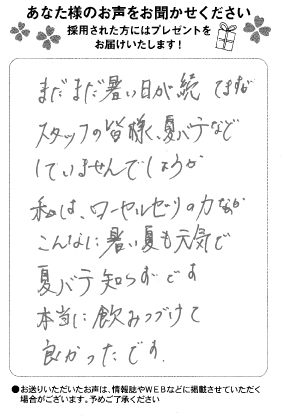 あなた様のお声をお聞かせください
採用された方にはプレゼントを
お届けいたします！
まだまだ暑い日が続 てますが
スタッフの皆様、夏バテなど
していませんでしょうか
私は、ローヤルゼリーの力なのか
こんなに暑い夏も元気で
夏バテ知らずです
本当に飲みつづけて
良かったです。
●お送りいただいたお声は、情報誌やWEBなどに掲載させていただく
場合がございます。予めご了承ください